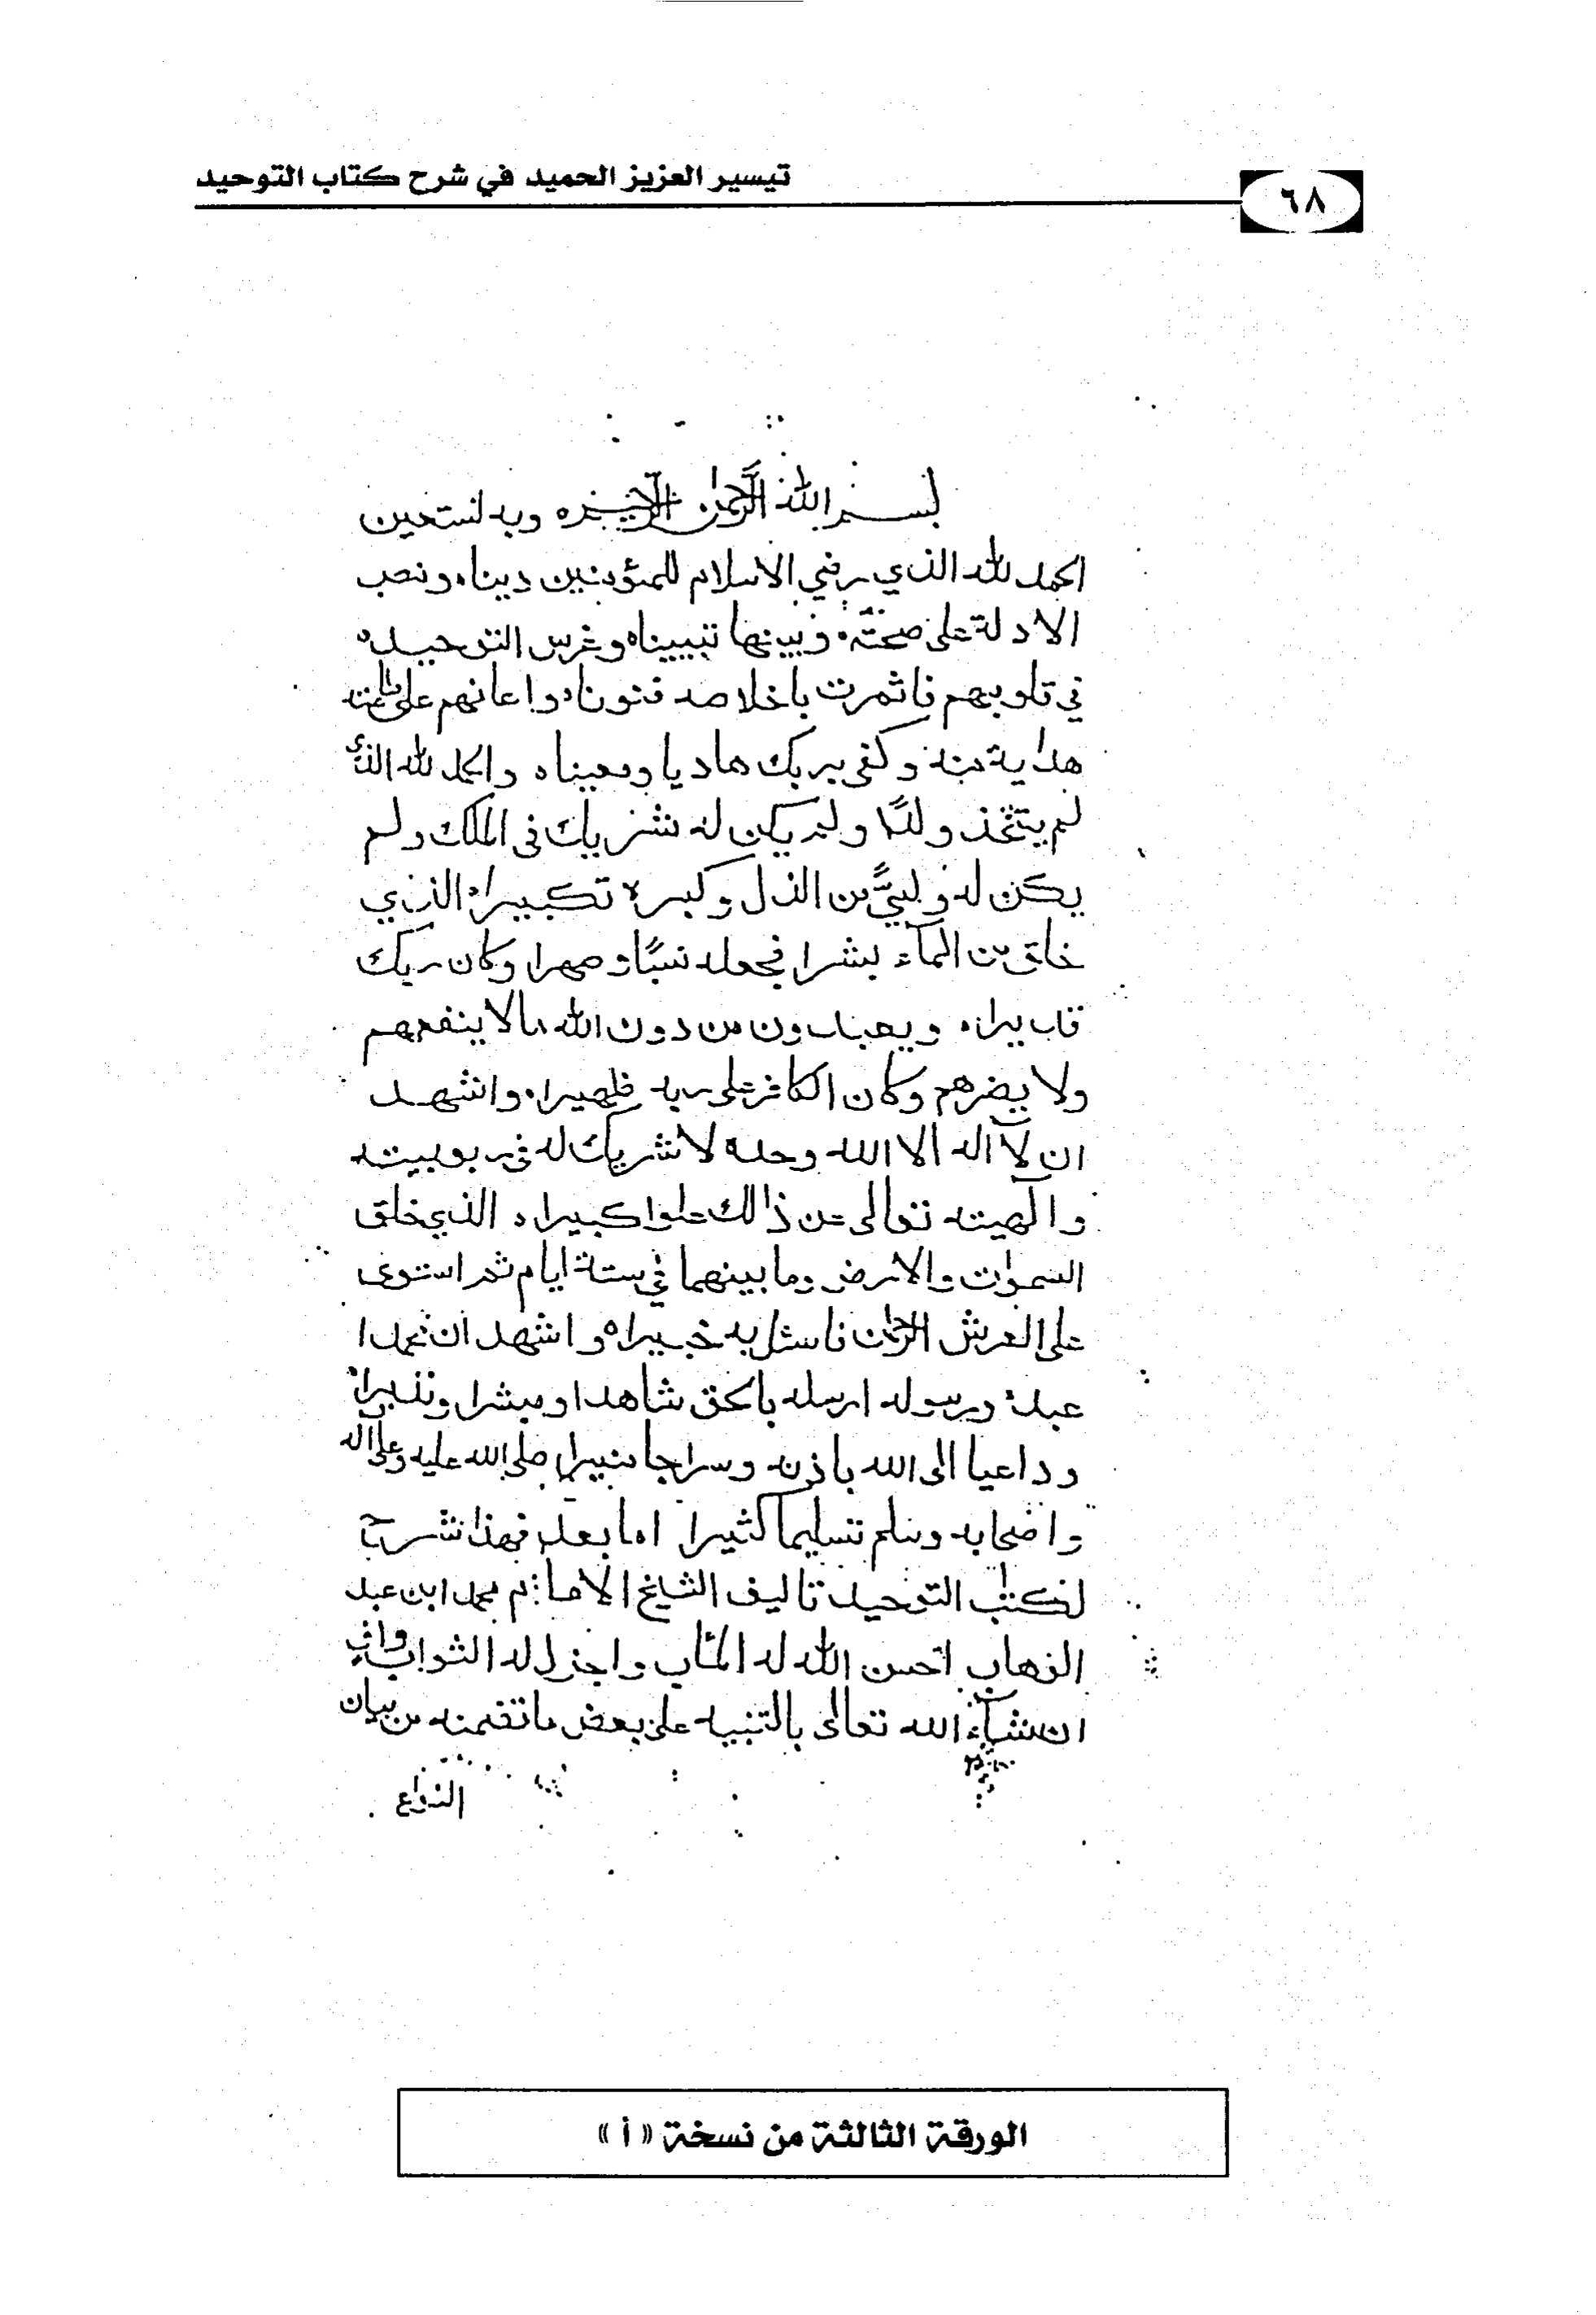 ٦٨
تيسير العزيز الحميد في شرح كتاب التوحيد
بسم الله الرحمن الرحيم ه وبه نستعين
الحمد لله الذي رضي الاسلام للمؤمنين ديناه ونصب
الادلة على صحته وبينها تبييناه وغرس التوحيد
في قلوبهم فاثمرت باخلاصه فنونا واعانهم على طاعته
هداية منه وكفى بربك هاديا ومعيناه والحمد لله الذي
لم يتخذ ولدًا ولم يكن له شريك في الملك ولم
يكن له وليٌّ من الذل وكبره تكبيرا الذي
خلق من المآء بشرا فجعله نسبًا وصهرا وكان ربك
قديراه ويعبدون من دون الله مالا ينفعهم
ولا يضرهم وكان الكافر على ربه ظهيراه واشهد
ان لآ اله الا الله وحده لا شريك له في ربوبيته
والهيته تعالى عن ذالك علوا كبيراه الذي خلق
السموات والارض وما بينهما في ستة ايام ثم استوى
على العرش الرحمن فاسئل به خبيراه واشهد ان محمدا
عبده ورسوله ارسله بالحق شاهدا ومبشرا ونذيرا
وداعيا الى الله باذنه وسراجا منيرا صلى الله عليه وعلى اله
واصحابه وسلم تسليما كثيرا اما بعد فهذا شرح
لكتاب التوحيد تاليف الشيخ الامام محمد ابن عبد
الوهاب احسن الله له المئاب واجزل له الثواب
ان شآء الله تعالى بالتنبيه على بعض ما تضمنه من بيان
انواع
الورقة الثالثة من نسخة «أ»